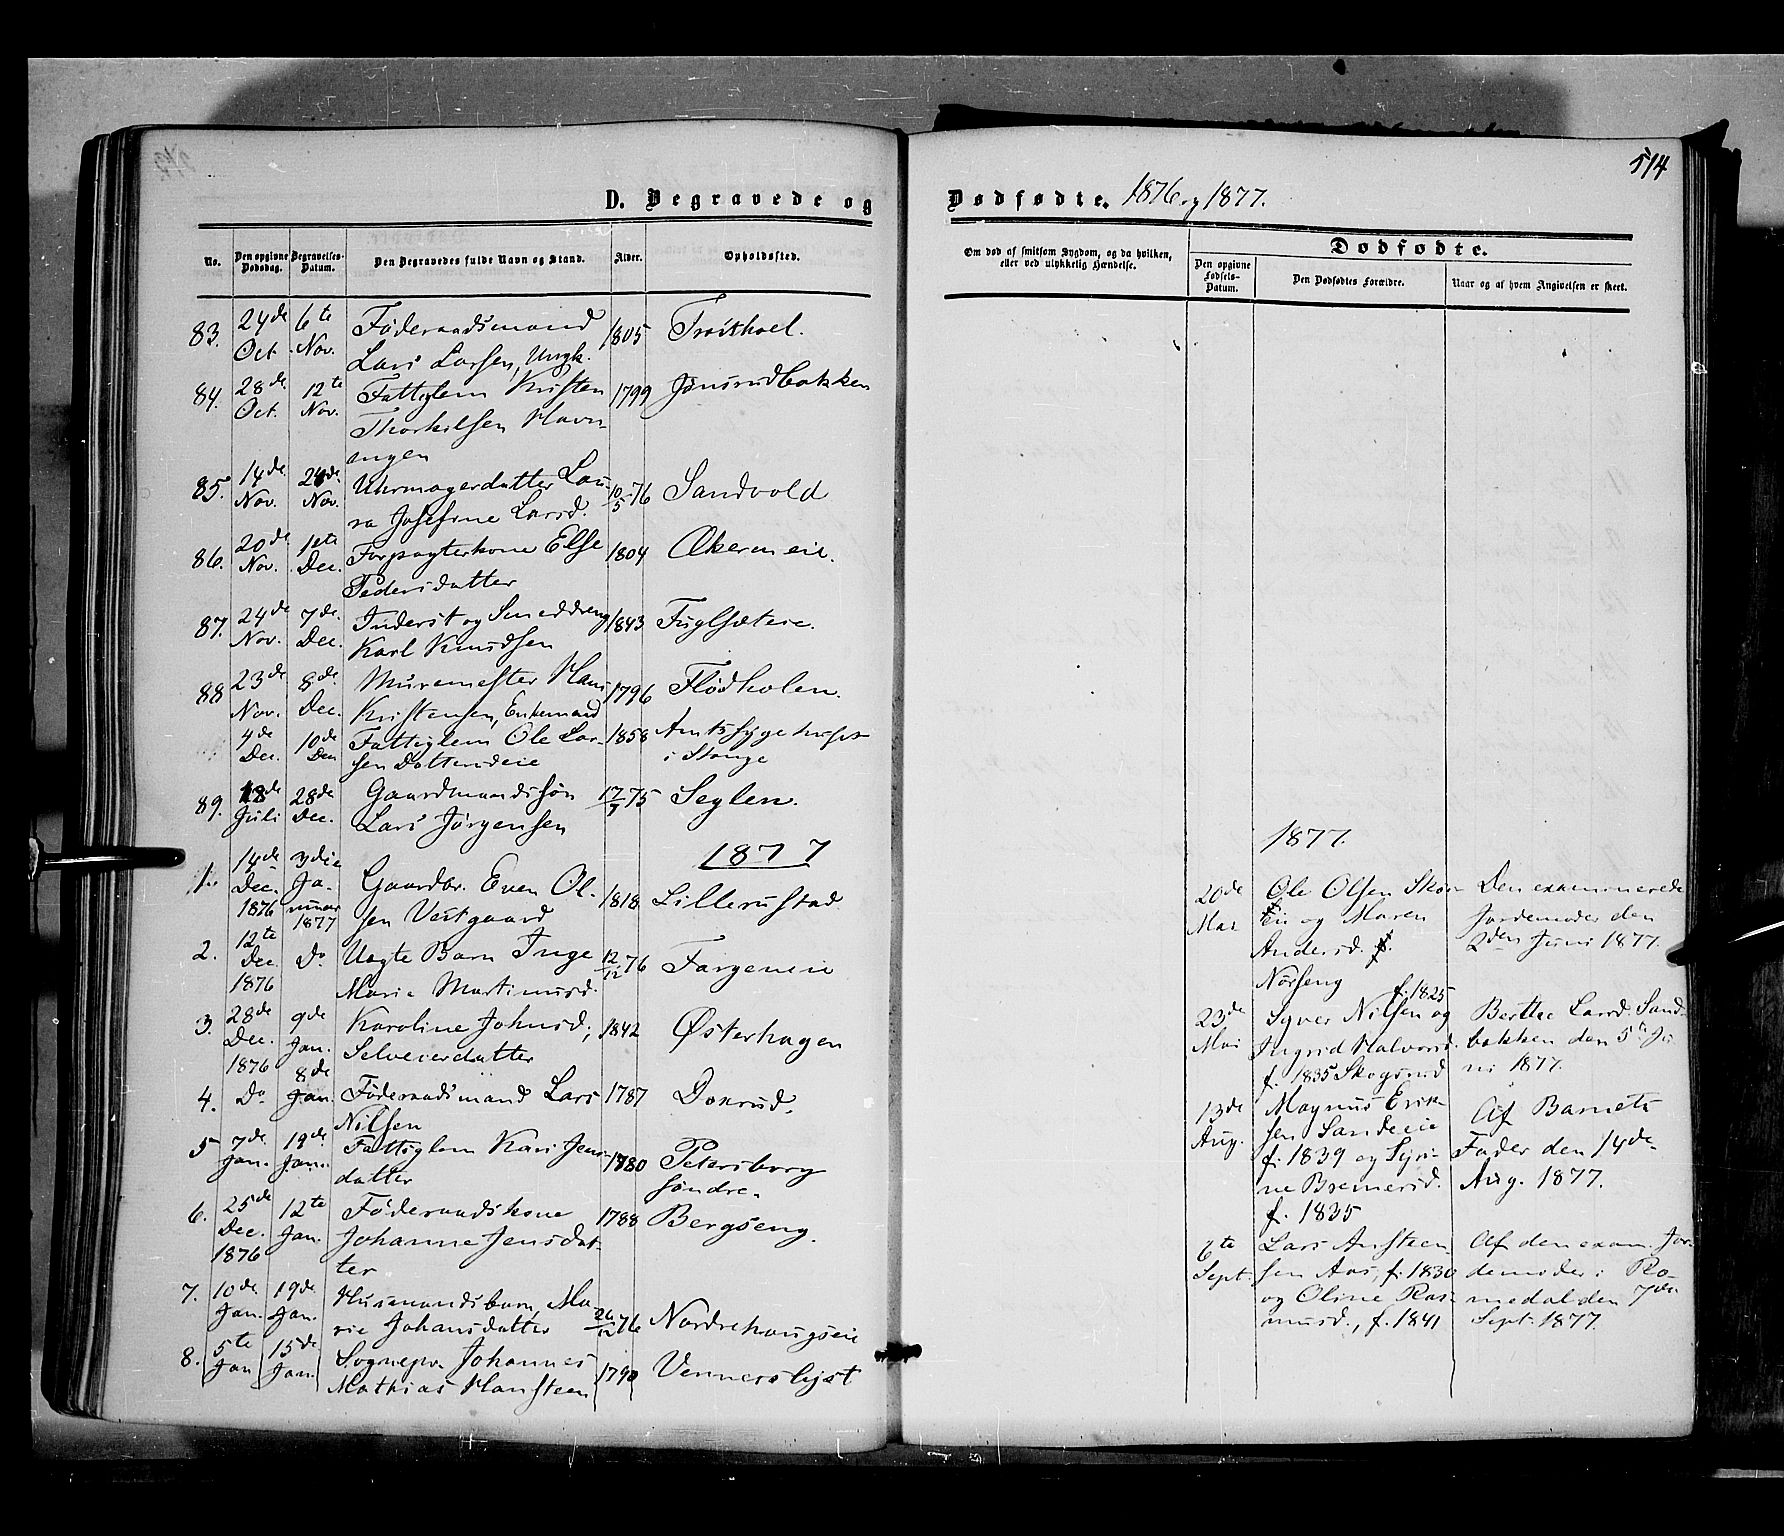 514
D. Begravede og
Dødfødte. 1876 og 1877.
No.
Den opgivne Dødsdag.
Begravelses-Datum.
Den Begravedes fulde Navn og Stand.
Alder.
Opholdssted.
Om død af smitsom Sygdom, og da hvilken, eller ved ulykkelig Hændelse.
Dødfødte.
Den opgivne Fødsels-Datum.
Den Dødfødtes Forældre.
Naar og af hvem Angivelsen er skeet.
83. 24de Oct. 6te Nov. Föderaadsmand
Lars Larsen, Ungk. 1805
84. 28de Oct. 12te Nov. Fattiglem Kristen
Thorkilsen Havn-
engen 1799 Jønsrudbakken
85. 14de Nov. Nov. Uhrmagerdatter Lau-
ra Josefine Larsd. 10/5 76 Sandvold
86. 20de Nov. 1ste Dec. Forpagterkone Else
Pedersdatter 1804 Akereneie.
87. 24de Nov. 7de Dec. Inderst og Smeddreng
Karl Knudsen 1843 Fuglsæteie.
88 23de Nov. 8de Dec. Muremester Hans
Kristensen, Enkemand 1796 Flödholen.
4de Dec. 10de Fattiglem Ole Lar-
sen Dottendeie 1858 Amtssygehuset
i Stange
89. 18de Juli 28de Dec. Gaardmandssön
Lars Jörgensen 17/7 75 Seglen.
1877
1. 14de Dec. 1876 3die Januar 1877 Gaardbr. Even Ol-
sen Vestgaard 1818 Lillerustad
2. 12te Dec. 1876 Do Uægte Barn Inge
Marie Martinusd. 12/12 76 Fargeneie
3. 28de Dec. 1876 9de Jan. Karoline Johnsd,
Selveierdatter 1842 Østerhagen
4. Do 8de Jan. Föderaadsmand Lars
Nilsen 1787 Doxrud.
5 7de Jan. 19de Jan. Fattiglem Kari Jens-
datter 1780 Petersborg
søndre.
6. 25de Dec. 1876 12te Jan. Föderaadskone
Johanne Jensdat-
ter 1788 Bergseng.
7. 10de Jan. 19de Jan. Husmandsbarn, Ma-
rie Johansdatter 26/12 76 Nordrehaugseie
8. 5te Jan 15de Jan. Sognepr. Johannes
Mathias Hansteen 1790 Vennerslyst
1877.
20de Mai Ole Olsen Skør-
Eie og Maren
Andersd.
Nörseng f. 1825
Den examinerede
Jordemoder den
2den Juni 1877.
23de Mai Syver Nilsen og
Ingrid Halvorsd.
f. 1835 Skogsrud
Berthe Larsd. Sand-
bakken den 5te Ju-
ni 1877.
13de Aug. Magnus Erik-
sen Sandeie
f. 1839 og Syri-
ne Bremersd.
f. 1835
Af Barnets
Fader den 14de
Aug. 1877.
6te Sept. Lars Ansteen-
sen Aas, f. 1830
og Oline Ras-
musd., f. 1841
Af den exam. Jor-
demoder i Ro-
medal den 7de
Sept. 1877.